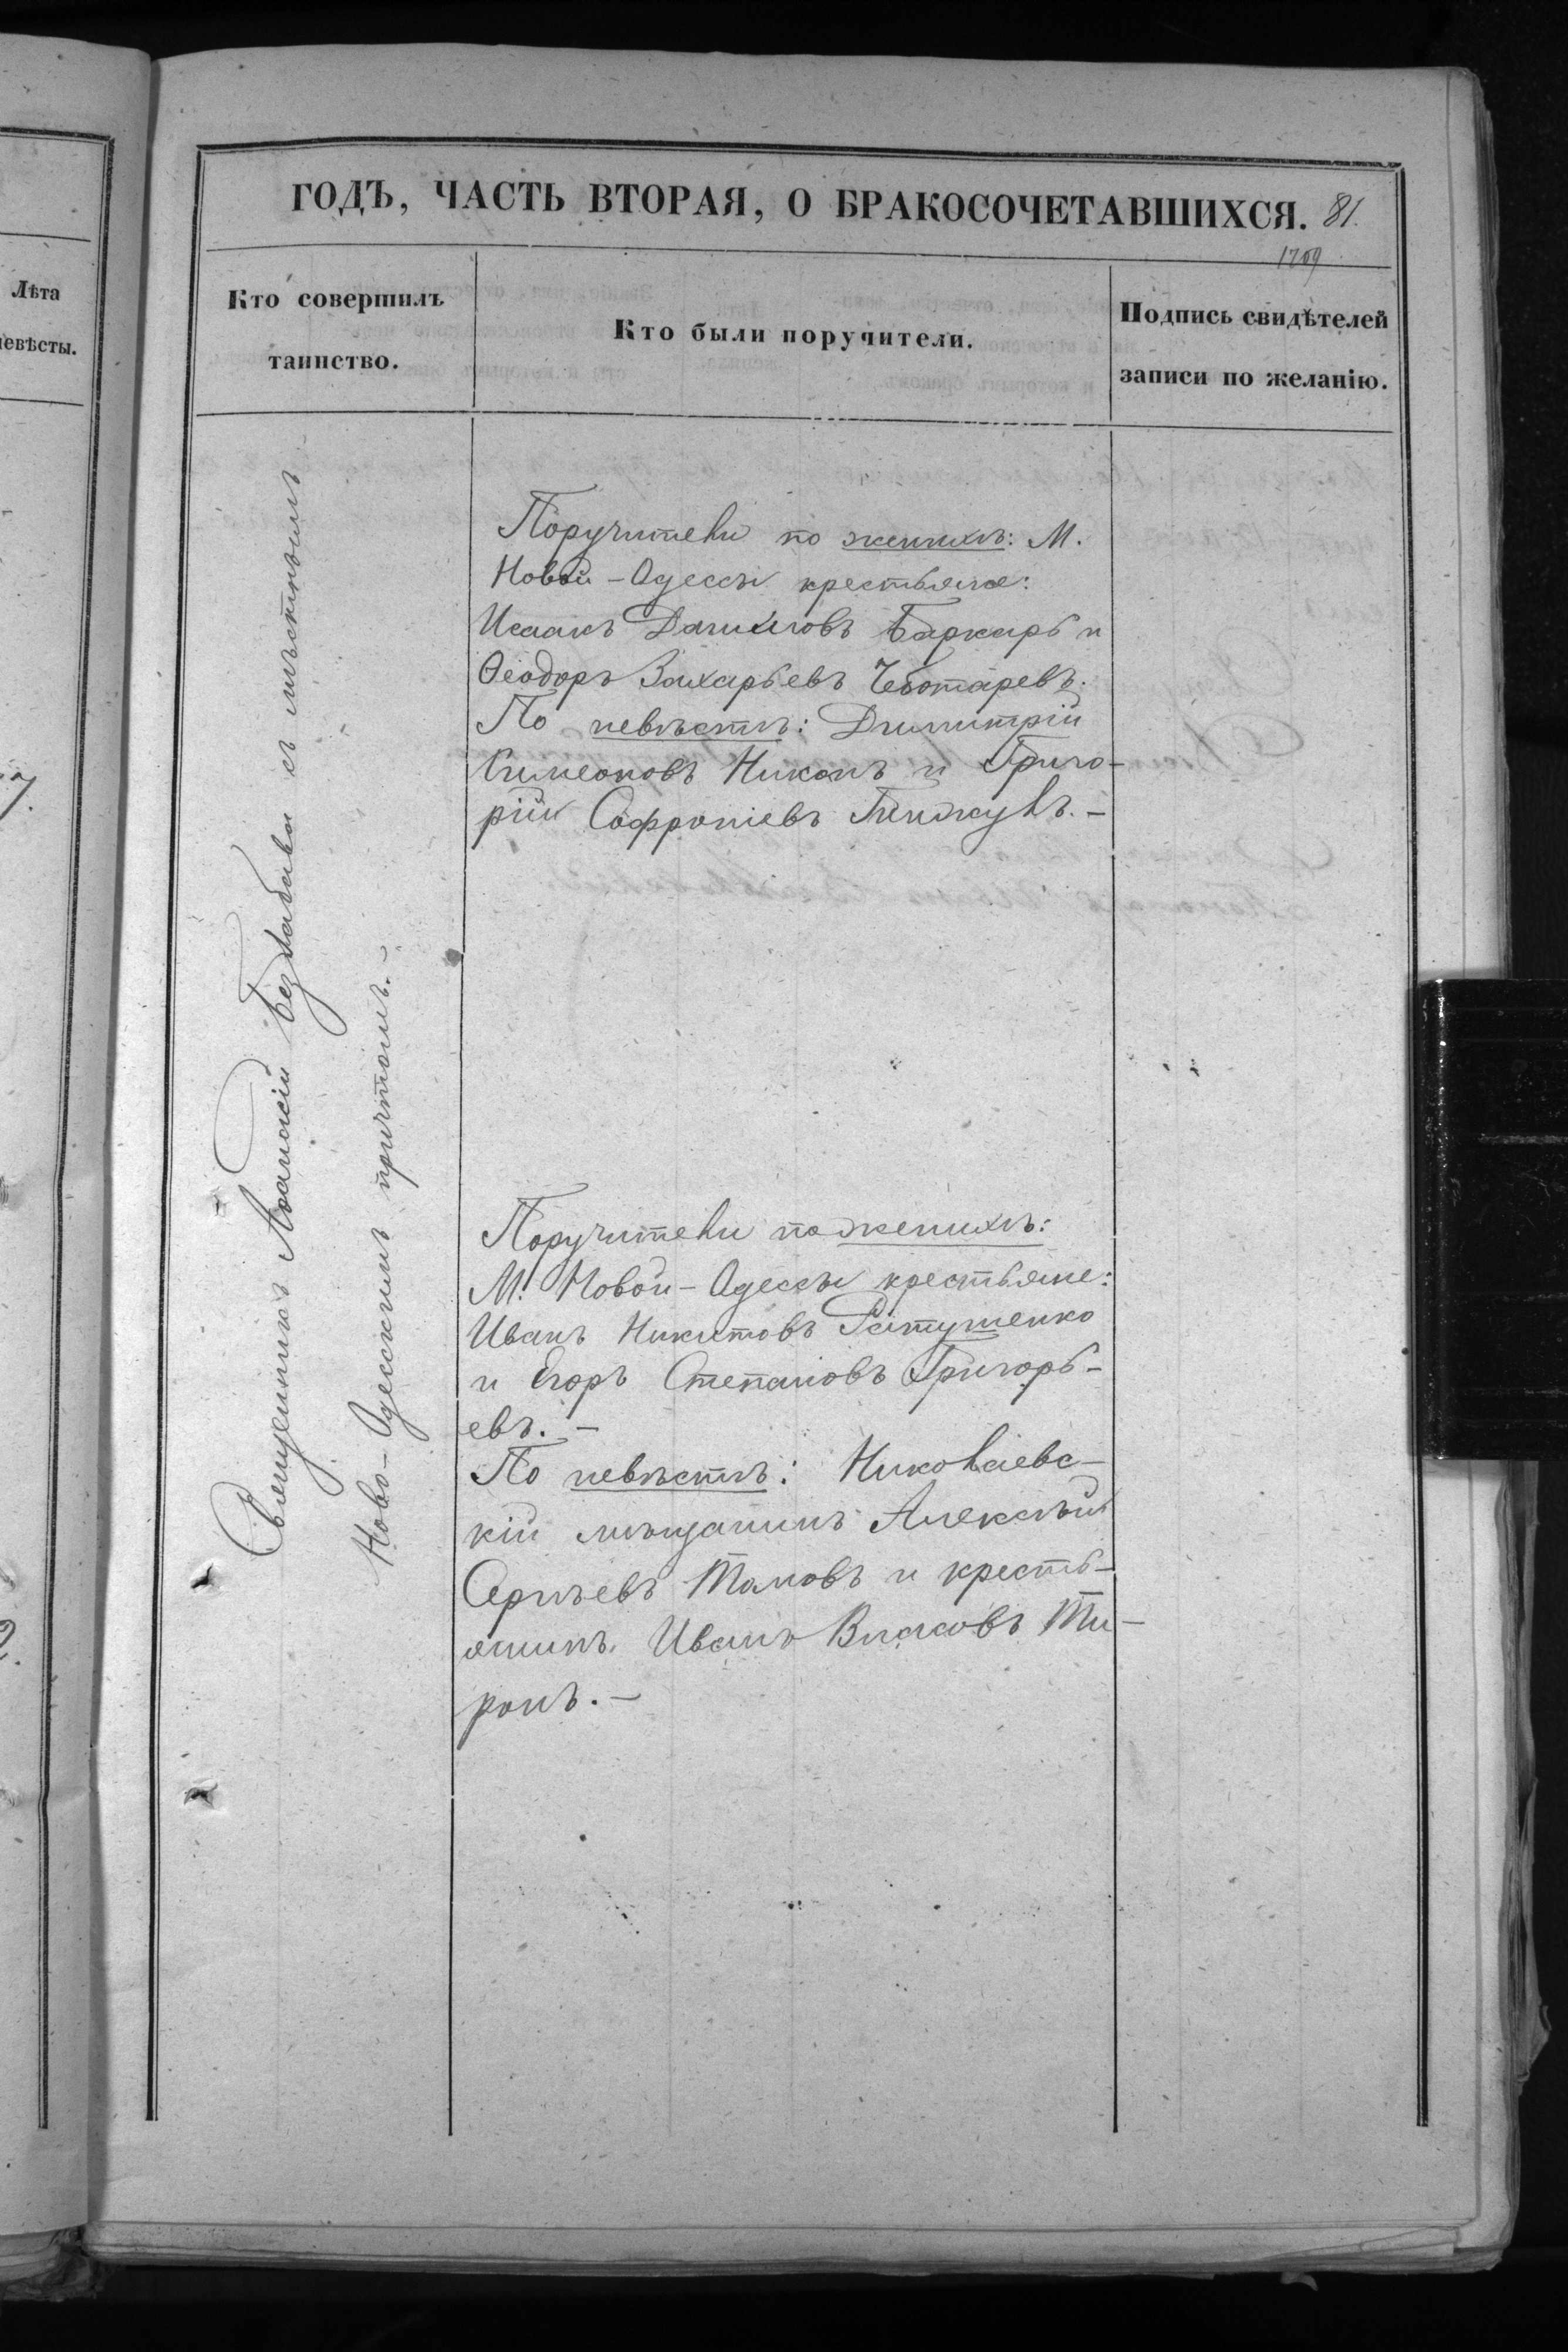 Лѣта
невѣсты.
ГОДЪ, ЧАСТЬ ВТОРАЯ, О БРАКОСОЧЕТАВШИХСЯ. 81.
1709
Кто совершилъ
таинство.
Кто были поручители.
Подпись свидѣтелей
записи по желанію.
Священникъ Аѳанасій Безбабавы съ мѣстнымъ
Ново-Одесскимъ причтомъ.-
Поручители по женихѣ: М.
Новой-Одессы крестьяне:
Исаакъ Данииловъ Баркарь и
Ѳеодоръ Захарьевъ Чеботаревъ.
По невѣстѣ: Димитрій
Симеоновъ Никонъ и Григо-
рій Софроніевъ Гинжулъ.-
Поручители по женихѣ:
М. Новой-Одессы крестьяне:
Иванъ Никитовъ Ратушенко
и Егоръ Степановъ Григорь-
евъ.-
По невѣстѣ: Николаевс-
кій мѣщанинъ Алексѣй
Сергѣевъ Тамовъ и кресть-
янинъ Иванъ Власовъ Ти-
ронъ.-